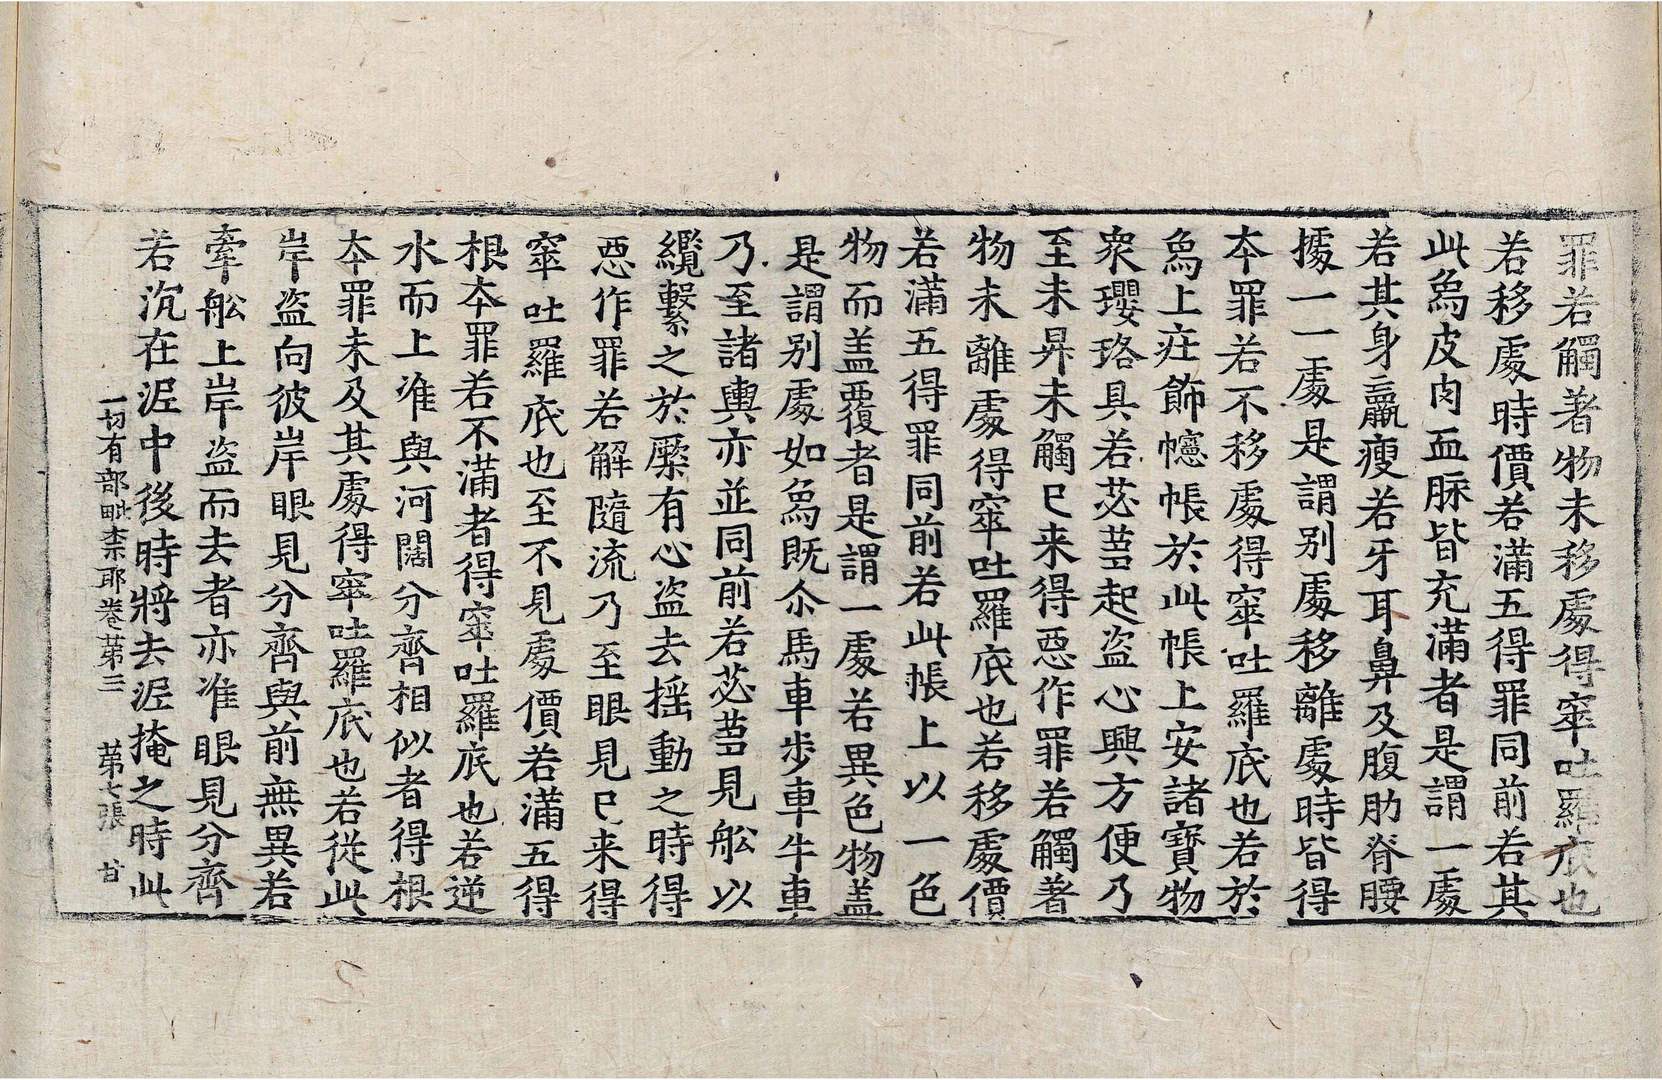 罪若觸著物未移處得窣吐羅底也
若移處時價若滿五得罪同前若其
此爲皮肉血脈皆充滿者是謂一處
若其身羸瘦若牙耳鼻及腹肋脊腰
據一一處是謂別處移離處時皆得
本罪若不移處得窣吐羅底也若於
爲上莊飾幰帳於此帳上安諸寶物
衆瓔珞具若苾蒭起盜心興方便乃
至未昇未觸已来得惡作罪若觸著
物未離處得窣吐羅底也若移處價
若滿五得罪同前若此帳上以一色
物而盖覆者是謂一處若異色物盖
是謂別處如爲既尒馬車步車牛車
乃至諸輿亦並同前若苾蒭見舩以
纜繫之於橜有心盜去摇動之時得
惡作罪若解隨流乃至眼見已来得
窣吐羅底也至不見處價若滿五得
根本罪若不滿者得窣吐羅底也若逆
水而上准與河闊分齊相似者得根
本罪未及其處得窣吐羅底也若從此
岸盜向彼岸眼見分齊與前無異若
牽舩上岸盜而去者亦准眼見分齊
若沉在泥中後時將去泥掩之時此
一切有部毗柰耶卷苐三　苐七張　甘